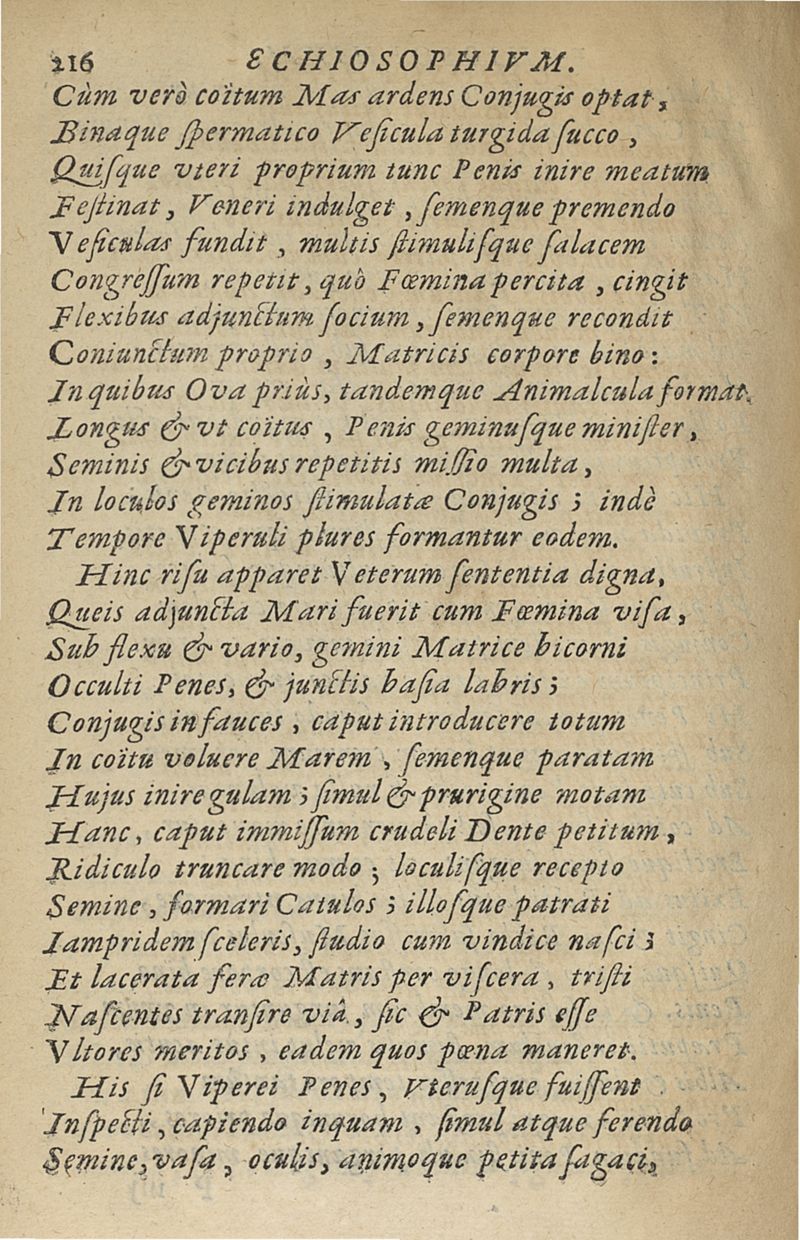 216 ECHIOSOPHIVM.
Cùm verò coïtum Mas ardens Conjugis optat,
Binaque ſpermatico Veſicula turgida ſucco,
Quiſque vteri proprium tunc Penis inire meatum
Feſtinat, Veneri indulget, ſemenque premendo
Veſiculas fundit, multis ſtimuliſque ſalacem
Congreſſum repetit, quò Fœmina percita, cingit
Flexibus adjunctum ſocium, ſemenque recondit
Coniunctum proprio, Matricis corpore bino:
In quibus Ova priùs, tandemque Animalcula format.
Longus & vt coïtus, Penis geminuſque miniſter,
Seminis & vicibus repetitis miſſio multa,
In loculos geminos ſtimulatæ Conjugis; indè
Tempore Viperuli plures formantur eodem.
Hinc riſu apparet Veterum ſententia digna,
Queis adjuncta Mari fuerit cum Fœmina viſa,
Sub flexu & vario, gemini Matrice bicorni
Occulti Penes, & junctis baſia labris;
Conjugis in fauces, caput introducere totum
In coïtu voluere Marem, ſemenque paratam
Hujus inire gulam; ſimul & prurigine motam
Hanc, caput immiſſum crudeli Dente petitum,
Ridiculo truncare modo; loculiſque recepto
Semine, formari Catulos; illoſque patrati
Iampridem ſceleris, ſtudio cum vindice naſci;
Et lacerata feræ Matris per viſcera, triſti
Naſcentes tranſire viâ, ſic & Patris eſſe
Vltores meritos, eadem quos pœna maneret.
His ſi Viperei Penes, Vteruſque fuiſſent
Inſpecti, capiendo inquam, ſimul atque ferendo
Semine, vaſa, oculis, animoque petita ſagaci,